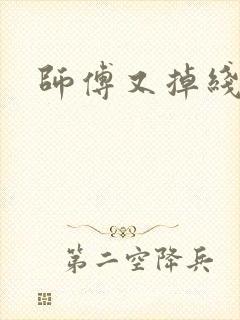 師傅又掉綫
第二空降兵